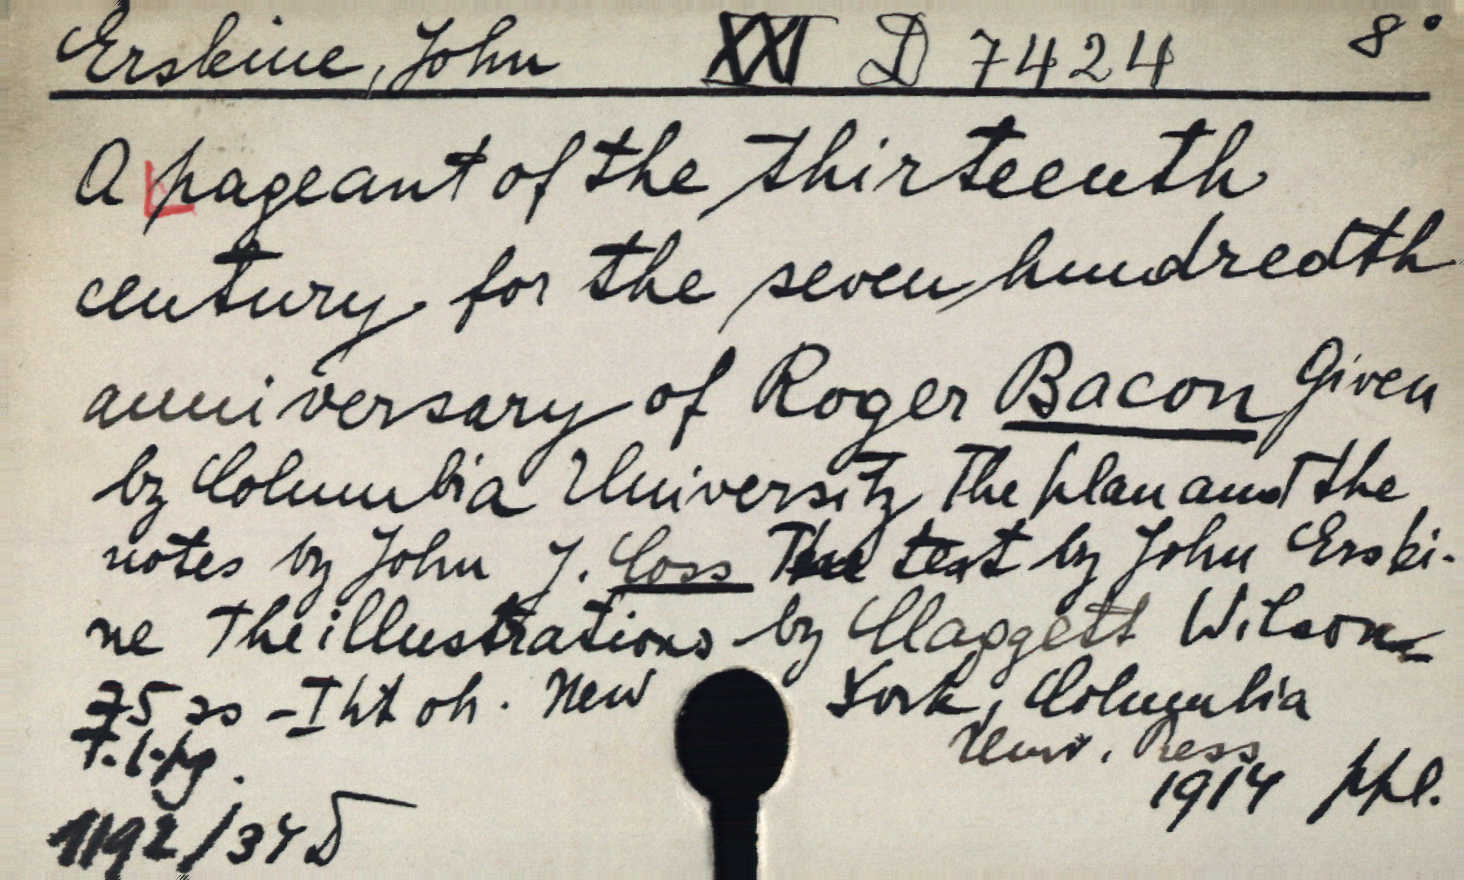 Erskine, John XXI D 7424 8°
A pageant of the thirteenth
century for the seven hundredth
anniversary of Roger Bacon Given
by Columbia University The plan and the
notes by John J. Coss The text by John Erski-
ne The illustrations by Claggett Wilson
75 - New York, Columbia
Univ. Press
1914 ppl.
1192/34 D